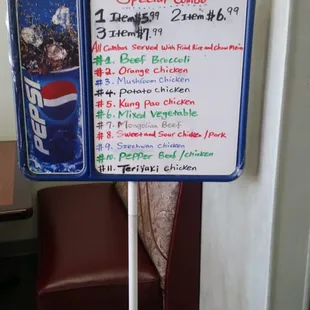 Special Combo
1 Item $5.99 2 Item $6.99
3 Item $7.99
All Combos Served With Fried Rice and Chow Mein
#1. Beef Broccoli
#2. Orange chicken
#3. Mushroom Chicken
#4. Potato chicken
#5. Kung Pao chicken
#6. Mixed Vegetable
#7. Mongolian Beef
#8. Sweet and Sour chicken/Pork
#9. Szechwan Chicken
#10. Pepper Beef/chicken
#11. Tariyaki chicken
PEPSI